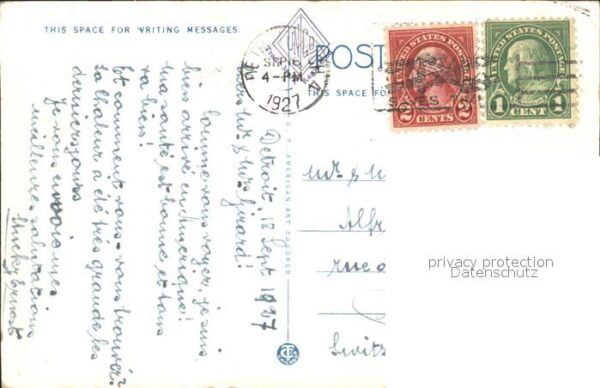 THIS SPACE FOR WRITING MESSAGES.
POST
THIS SPACE FOR
DE
SEP 18
4-PM
1927
UNITED STATES POSTAGE
2 CENTS 2
UNITED STATES POSTAGE
1 CENT 1
Detroit, 18 Sept 1927
Mr & Mrs Girard!
Comme vous voyez, je suis
bien arrivé en Amérique!
Ma santé est bonne et tous
va bien!
Et comment vous
La chaleur a été très grande les
derniers jours
Je vous envoie mes
meilleures salutations
Ernest
C. T. AMERICAN ART COLORED
Mr & M
Alfr
rue
Switz
privacy protection
Datenschutz